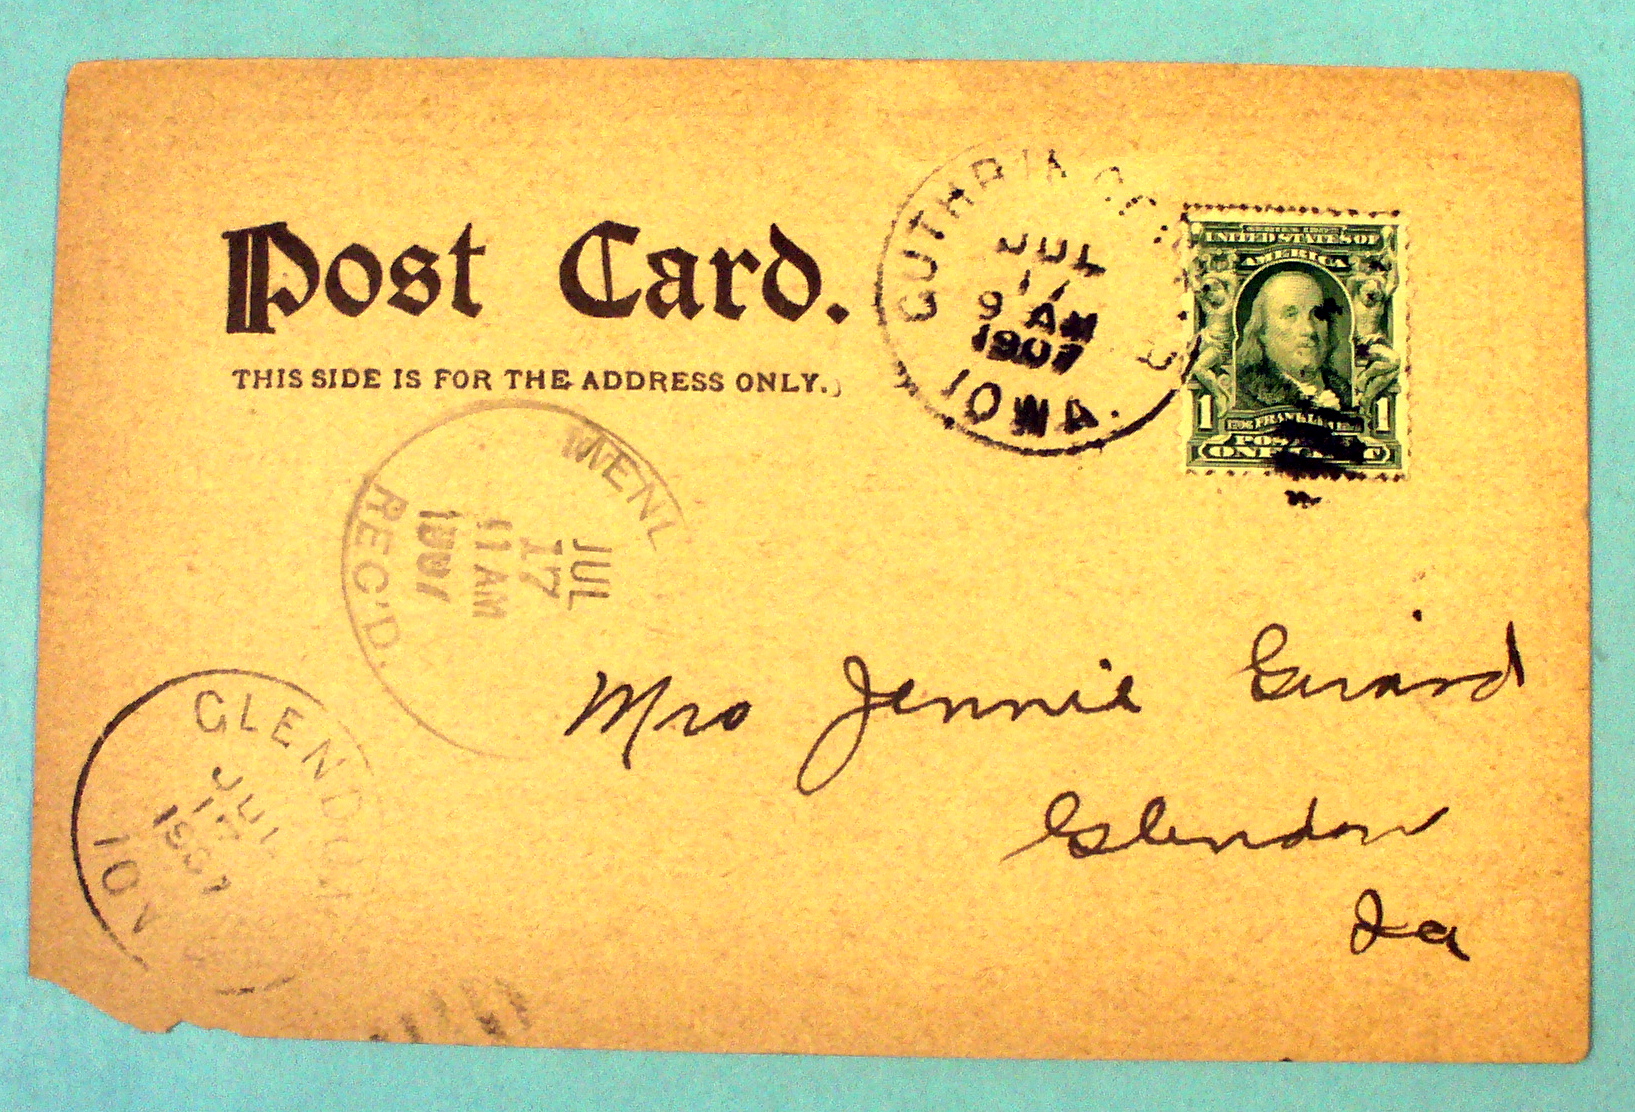 Post Card.
THIS SIDE IS FOR THE ADDRESS ONLY.
GUTHRIE
JUL
17
9 AM
1907
IOWA.
UNITED STATES OF
AMERICA
1 FRANKLIN 1
ONE CENT
MENL
JUL
17
11 AM
1907
REC'D.
GLENDON
JUL
17
1907
IOWA
Mrs Jennie Girard
Glendon
Ia